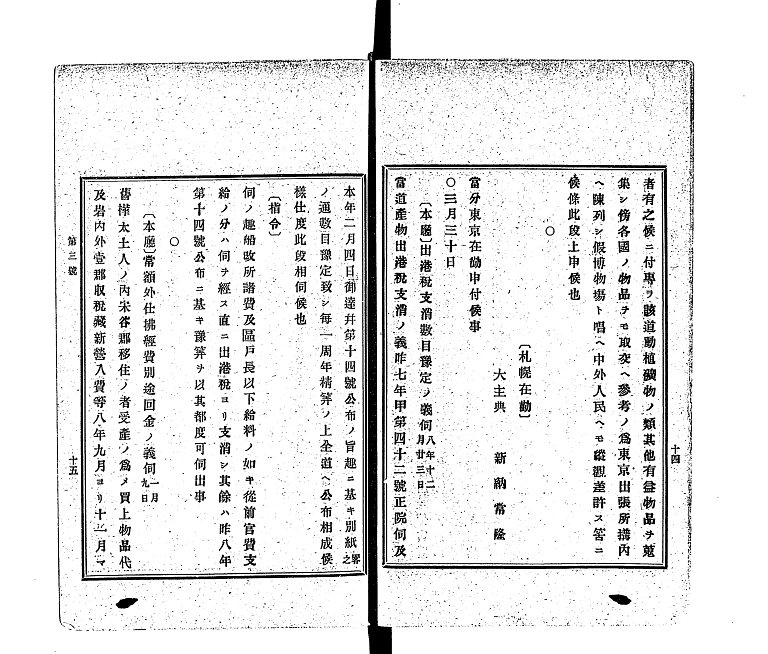 十四
者有之候ニ付專ラ該道動植礦物ノ類其他有益物品ヲ蒐
集シ傍各國ノ物品ヲモ取交ヘ參考ノ爲東京出張所搆內
ヘ陳列シ假博物塲ト唱ヘ中外人民ヘモ縱觀差許ス筈ニ
候條此段上申候也
○
〔札幌在勤〕
大主典 新納常隆
當分東京在勤申付候事
○三月三十日
〔本廳〕出港稅支消數目豫定ノ義伺八年十二月廿三日
當道產物出港稅支消ノ義昨七年甲第四十二號正院伺及
本年二月四日御達幷第十四號公布ノ旨趣ニ基キ別紙略之
ノ通數目豫定致シ每一周年精算ノ上全道ヘ公布相成候
樣仕度此段相伺候也
〔指令〕
伺ノ趣船改所諸費及區戶長以下給料ノ如キ從前官費支
給ノ分ハ伺ヲ經ス直ニ出港稅ヨリ支消シ其餘ハ昨八年
第十四號公布ニ基キ豫算ヲ以其都度可伺出事
○
〔本廳〕常額外仕拂經費別途回金ノ義伺一月九日
舊樺太土人ノ內未各郡移住ノ者受產ノ爲メ買上物品代
及岩內外壹郡収稅藏新營入費等八年九月ヨリ十一月マ
第三號
十五